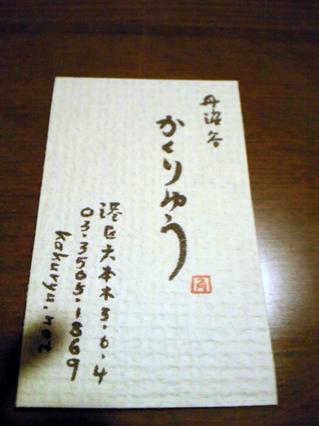 丹沼谷
かくりゅう
角
港区六本木3.6.4
03.3505.1869
kakuryu.net